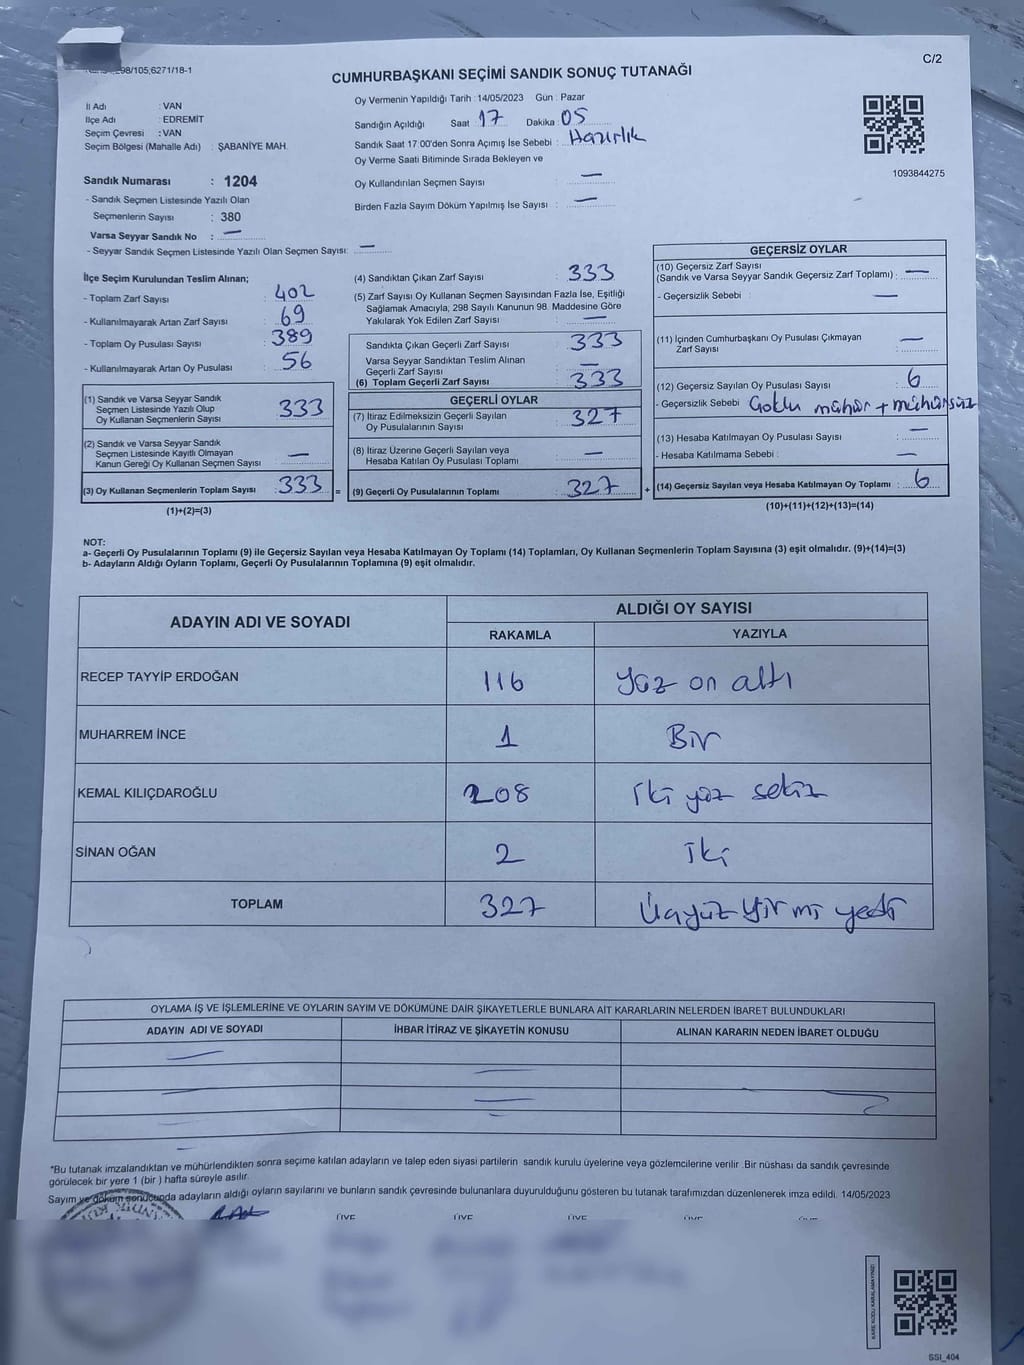 C/2
CUMHURBAŞKANI SEÇİMİ SANDIK SONUÇ TUTANAĞI
İl Adı : VAN
İlçe Adı : EDREMİT
Seçim Çevresi : VAN
Seçim Bölgesi (Mahalle Adı) : ŞABANİYE MAH.
Oy Vermenin Yapıldığı Tarih : 14/05/2023 Gün : Pazar
Sandığın Açıldığı Saat 17 Dakika : 05
Sandık Saat 17:00'den Sonra Açımış İse Sebebi : Hazırlık
Oy Verme Saati Bitiminde Sırada Bekleyen ve
Oy Kullandırılan Seçmen Sayısı : —
Birden Fazla Sayım Döküm Yapılmış İse Sayısı : —
1093844275
Sandık Numarası : 1204
- Sandık Seçmen Listesinde Yazılı Olan
Seçmenlerin Sayısı : 380
Varsa Seyyar Sandık No : —
- Seyyar Sandık Seçmen Listesinde Yazılı Olan Seçmen Sayısı: —
İlçe Seçim Kurulundan Teslim Alınan;
- Toplam Zarf Sayısı : 402
- Kullanılmayarak Artan Zarf Sayısı : 69
- Toplam Oy Pusulası Sayısı : 389
- Kullanılmayarak Artan Oy Pusulası : 56
(1) Sandık ve Varsa Seyyar Sandık
Seçmen Listesinde Yazılı Olup
Oy Kullanan Seçmenlerin Sayısı : 333
(2) Sandık ve Varsa Seyyar Sandık
Seçmen Listesinde Kayıtlı Olmayan
Kanun Gereği Oy Kullanan Seçmen Sayısı : —
(3) Oy Kullanan Seçmenlerin Toplam Sayısı : 333 =
(1)+(2)=(3)
(4) Sandıktan Çıkan Zarf Sayısı : 333
(5) Zarf Sayısı Oy Kullanan Seçmen Sayısından Fazla İse, Eşitliği
Sağlamak Amacıyla, 298 Sayılı Kanunun 98. Maddesine Göre
Yakılarak Yok Edilen Zarf Sayısı : —
Sandıkta Çıkan Geçerli Zarf Sayısı : 333
Varsa Seyyar Sandıktan Teslim Alınan
Geçerli Zarf Sayısı : —
(6) Toplam Geçerli Zarf Sayısı : 333
GEÇERLİ OYLAR
(7) İtiraz Edilmeksizin Geçerli Sayılan
Oy Pusulalarının Sayısı : 327
(8) İtiraz Üzerine Geçerli Sayılan veya
Hesaba Katılan Oy Pusulası Toplamı : —
(9) Geçerli Oy Pusulalarının Toplamı : 327 +
GEÇERSİZ OYLAR
(10) Geçersiz Zarf Sayısı
(Sandık ve Varsa Seyyar Sandık Geçersiz Zarf Toplamı) : —
- Geçersizlik Sebebi : —
(11) İçinden Cumhurbaşkanı Oy Pusulası Çıkmayan
Zarf Sayısı : —
(12) Geçersiz Sayılan Oy Pusulası Sayısı : 6
- Geçersizlik Sebebi Çoklu mühür + mühürsüz
(13) Hesaba Katılmayan Oy Pusulası Sayısı : —
- Hesaba Katılmama Sebebi : —
(14) Geçersiz Sayılan veya Hesaba Katılmayan Oy Toplamı : 6
(10)+(11)+(12)+(13)=(14)
NOT:
a- Geçerli Oy Pusulalarının Toplamı (9) ile Geçersiz Sayılan veya Hesaba Katılmayan Oy Toplamı (14) Toplamları, Oy Kullanan Seçmenlerin Toplam Sayısına (3) eşit olmalıdır. (9)+(14)=(3)
b- Adayların Aldığı Oyların Toplamı, Geçerli Oy Pusulalarının Toplamına (9) eşit olmalıdır.
ADAYIN ADI VE SOYADI ALDIĞI OY SAYISI
RAKAMLA YAZIYLA
RECEP TAYYİP ERDOĞAN 116 Yüz on altı
MUHARREM İNCE 1 Bir
KEMAL KILIÇDAROĞLU 208 İki yüz sekiz
SİNAN OĞAN 2 İki
TOPLAM 327 Üçyüz yirmi yedi
OYLAMA İŞ VE İŞLEMLERİNE VE OYLARIN SAYIM VE DÖKÜMÜNE DAİR ŞİKAYETLERLE BUNLARA AİT KARARLARIN NELERDEN İBARET BULUNDUKLARI
ADAYIN ADI VE SOYADI İHBAR İTİRAZ VE ŞİKAYETİN KONUSU ALINAN KARARIN NEDEN İBARET OLDUĞU
*Bu tutanak imzalandıktan ve mühürlendikten sonra seçime katılan adayların ve talep eden siyasi partilerin sandık kurulu üyelerine veya gözlemcilerine verilir .Bir nüshası da sandık çevresinde
görülecek bir yere 1 (bir ) hafta süreyle asılır.
Sayım ve döküm sonucunda adayların aldığı oyların sayılarını ve bunların sandık çevresinde bulunanlara duyurulduğunu gösteren bu tutanak tarafımızdan düzenlenerek imza edildi. 14/05/2023
ÜYE ÜYE ÜYE
KARE KODU KARALAMAYINIZ!
SSI_404